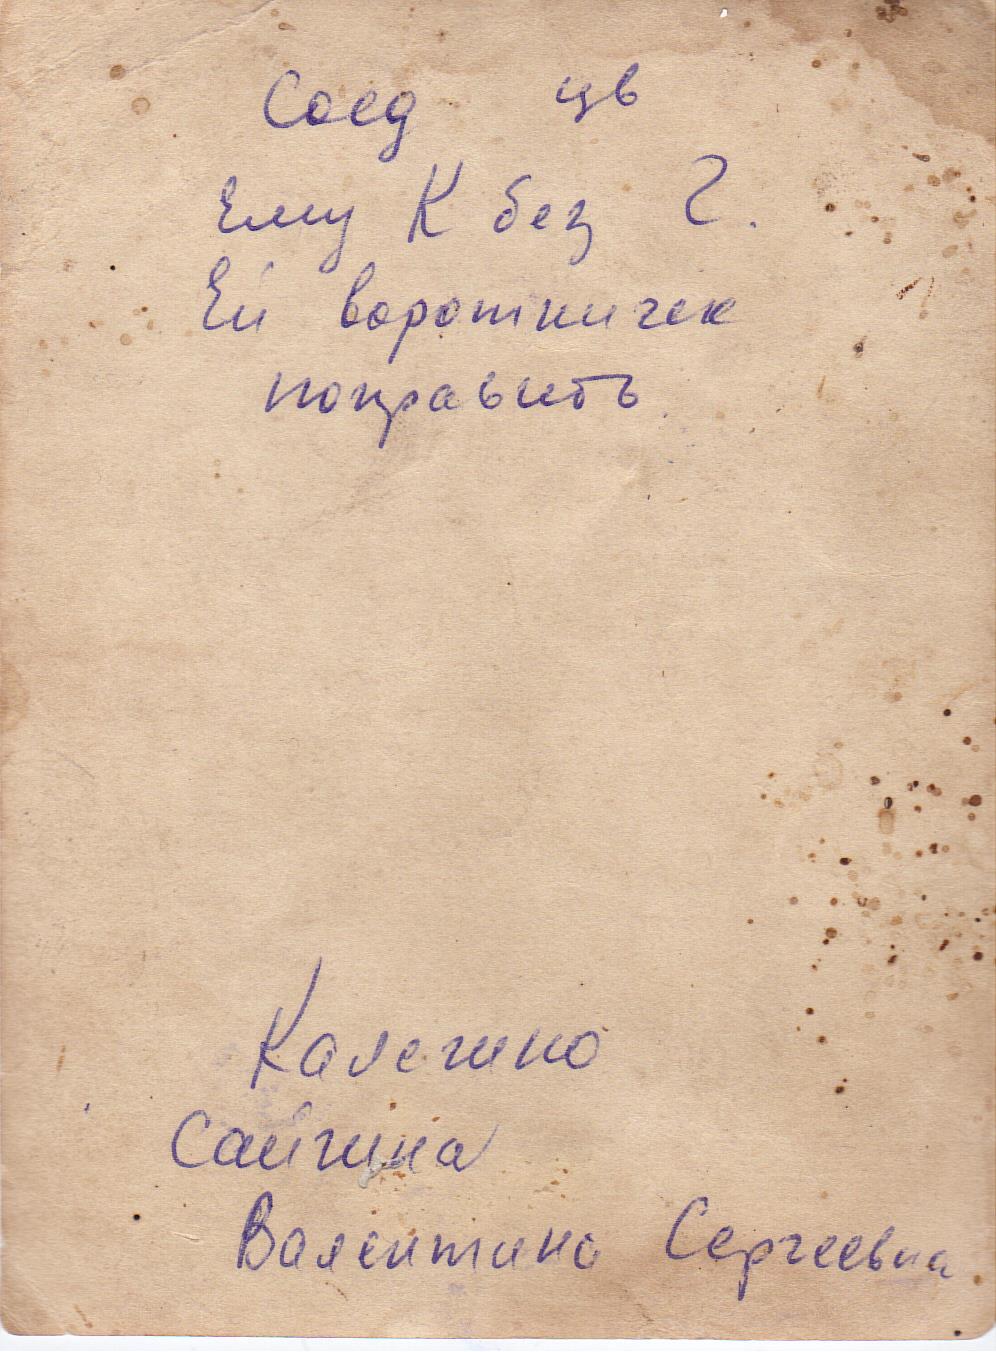 Соед цв
Ему К без Г.
Ей воротничек
поправить
Калегино
Сайгина
Валентина Сергеевна